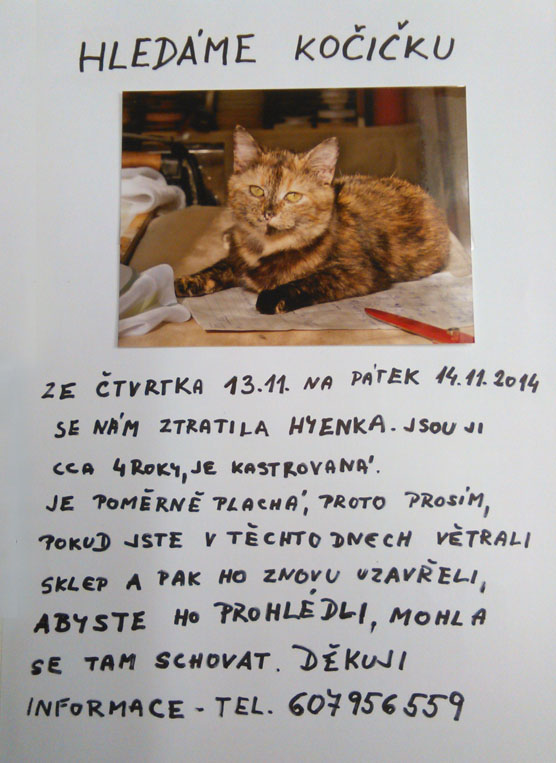 HLEDÁME KOČIČKU
ZE ČTVRTKA 13.11. NA PÁTEK 14.11.2014
SE NÁM ZTRATILA HYENKA. JSOU JI
CCA 4 ROKY, JE KASTROVANÁ.
JE POMĚRNĚ PLACHÁ, PROTO PROSÍM,
POKUD JSTE V TĚCHTO DNECH VĚTRALI
SKLEP A PAK HO ZNOVU UZAVŘELI,
ABYSTE HO PROHLÉDLI, MOHLA
SE TAM SCHOVAT. DĚKUJI
INFORMACE - TEL. 607956559